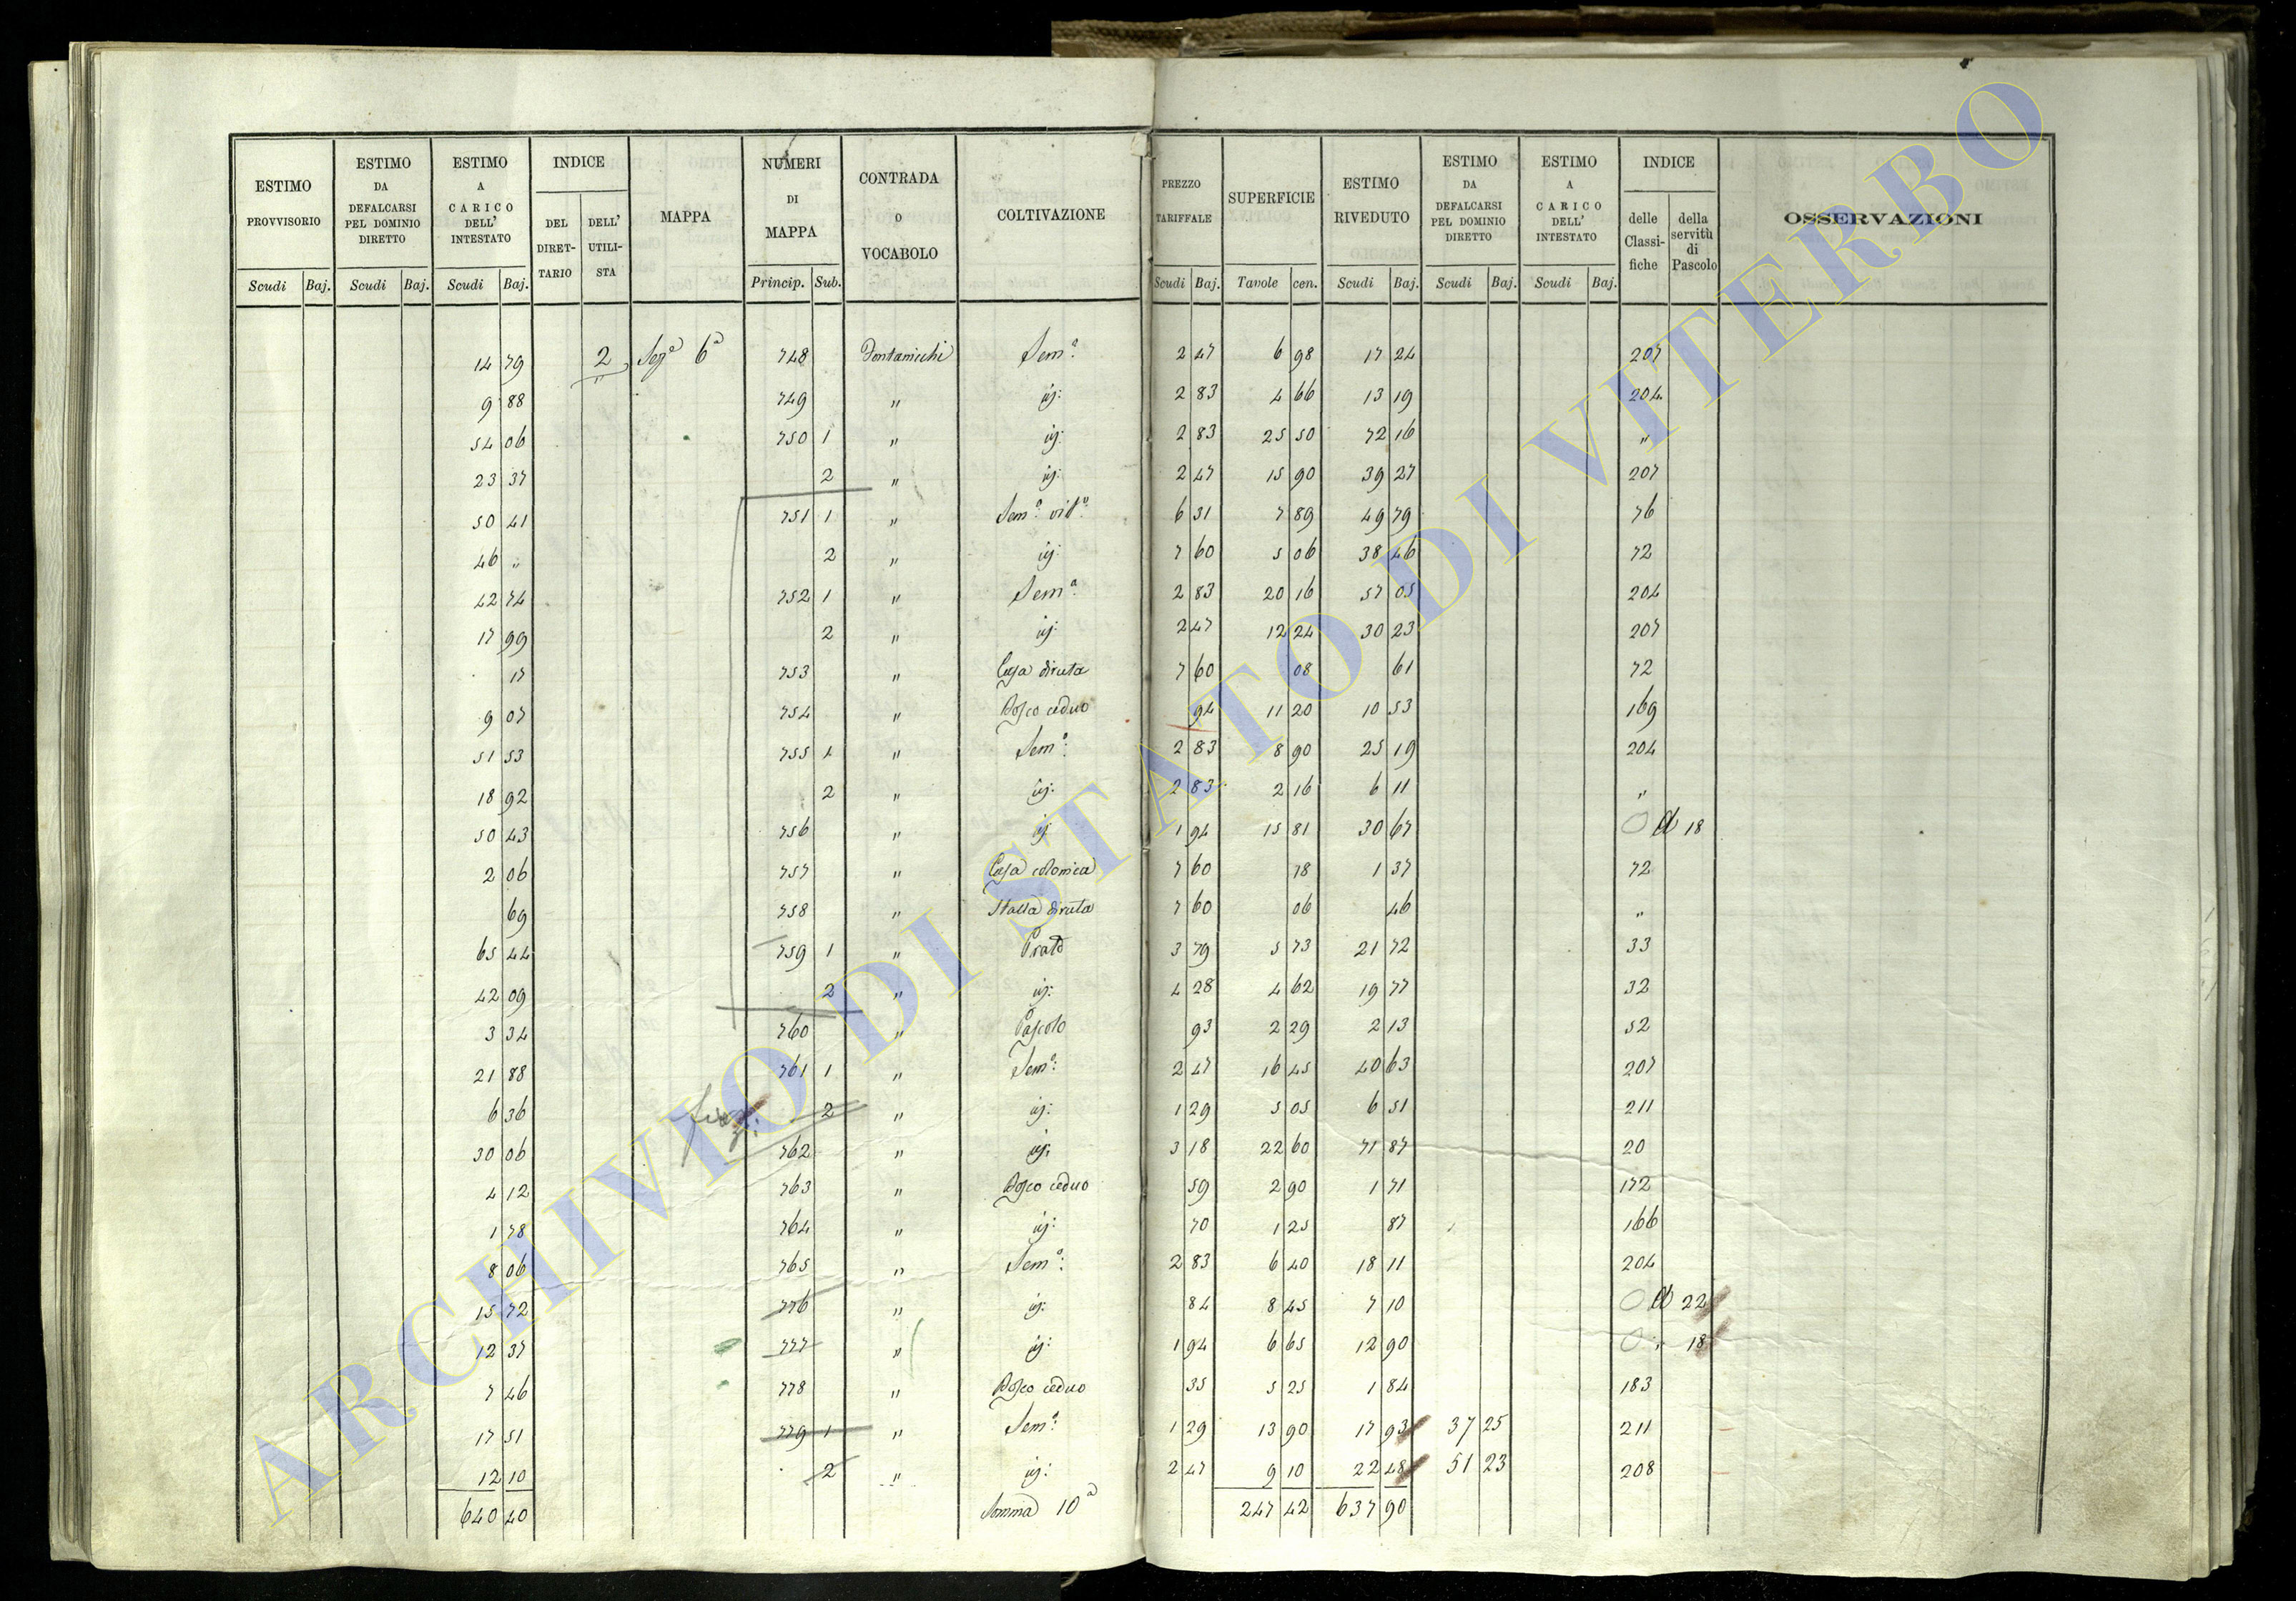 ESTIMO PROVVISORIO | ESTIMO DA DEFALCARSI PEL DOMINIO DIRETTO | ESTIMO A CARICO DELL' INTESTATO | INDICE | MAPPA | NUMERI DI MAPPA | CONTRADA O VOCABOLO | COLTIVAZIONE | PREZZO TARIFFALE | SUPERFICIE | ESTIMO RIVEDUTO | ESTIMO DA DEFALCARSI PEL DOMINIO DIRETTO | ESTIMO A CARICO DELL' INTESTATO | INDICE | OSSERVAZIONI
DEL DIRET-TARIO | DELL' UTILI-STA | delle Classi-fiche | della servitù di Pascolo
Scudi Baj. | Scudi Baj. | Scudi Baj. | Princip. Sub. | Scudi Baj. | Tavole cen. | Scudi Baj. | Scudi Baj. | Scudi Baj.
14 79 | 2 | Segᵉ 6ª | 748 | | Semº: | 2 47 | 6 98 | 17 24 | 207
9 88 | 749 | " | id: | 2 83 | 4 66 | 13 19 | 204
54 06 | 750 1 | " | id: | 2 83 | 25 50 | 72 16 | "
23 37 | 2 | " | id: | 2 47 | 15 90 | 39 27 | 207
50 41 | 751 1 | " | Semº: vitº: | 6 31 | 7 89 | 49 79 | 76
46 " | 2 | " | id: | 7 60 | 5 06 | 38 46 | 72
42 74 | 752 1 | " | Semº: | 2 83 | 20 16 | 57 05 | 204
17 99 | 2 | " | id: | 2 47 | 12 24 | 30 23 | 207
17 | 753 | " | Casa diruta | 7 60 | 08 | 61 | 72
9 07 | 754 | " | Bosco ceduo | 94 | 11 20 | 10 53 | 169
51 53 | 755 1 | " | Semº: | 2 83 | 8 90 | 25 19 | 204
18 92 | 2 | " | id: | 2 83 | 2 16 | 6 11 | "
50 43 | 756 | " | id | 1 94 | 15 81 | 30 67 | 18
2 06 | 757 | " | Casa colonica | 7 60 | 18 | 1 37 | 72
69 | 758 | " | Stalla diruta | 7 60 | 06 | 46 | "
65 44 | 759 1 | " | Prato | 3 79 | 5 73 | 21 72 | 33
42 09 | 2 | " | id: | 4 28 | 4 62 | 19 77 | 32
3 34 | 760 | " | Pascolo | 93 | 2 29 | 2 13 | 52
21 88 | 761 1 | " | Semº: | 2 47 | 16 45 | 40 63 | 207
6 36 | 2 | " | id: | 1 29 | 5 05 | 6 51 | 211
30 06 | 762 | " | id: | 3 18 | 22 60 | 71 87 | 20
4 12 | 763 | " | Bosco ceduo | 59 | 2 90 | 1 71 | 172
1 78 | 764 | " | id: | 70 | 1 25 | 87 | 166
8 06 | 765 | " | Semº: | 2 83 | 6 40 | 18 11 | 204
15 72 | 776 | " | id: | 84 | 8 45 | 7 10 | 22
12 37 | 777 | " | id: | 1 94 | 6 65 | 12 90 | " 18
7 46 | 778 | " | Bosco ceduo | 35 | 5 25 | 1 84 | 183
17 51 | 779 1 | " | Semº: | 1 29 | 13 90 | 17 93 | 37 25 | 211
12 10 | 2 | " | id: | 2 47 | 9 10 | 22 48 | 51 23 | 208
640 40 | Somma 10ª | 247 42 | 637 90
ARCHIVIO DI STATO DI VITERBO